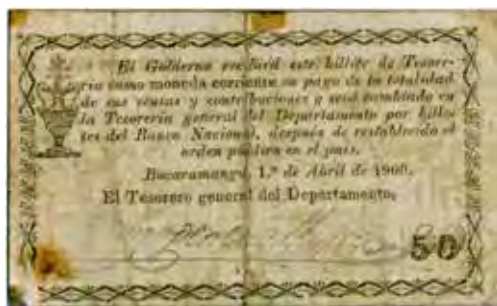 El Gobierno recibirá este billete de Tesore-
ría como moneda corriente en pago de la totalidad
de sus rentas y contribuciones y será cambiado en
la Tesorería general del Departamento por bille-
tes del Banco Nacional, después de restablecido el
orden público en el país.
Bucaramanga, 1.º de Abril de 1900.
El Tesorero general del Departamento,
50